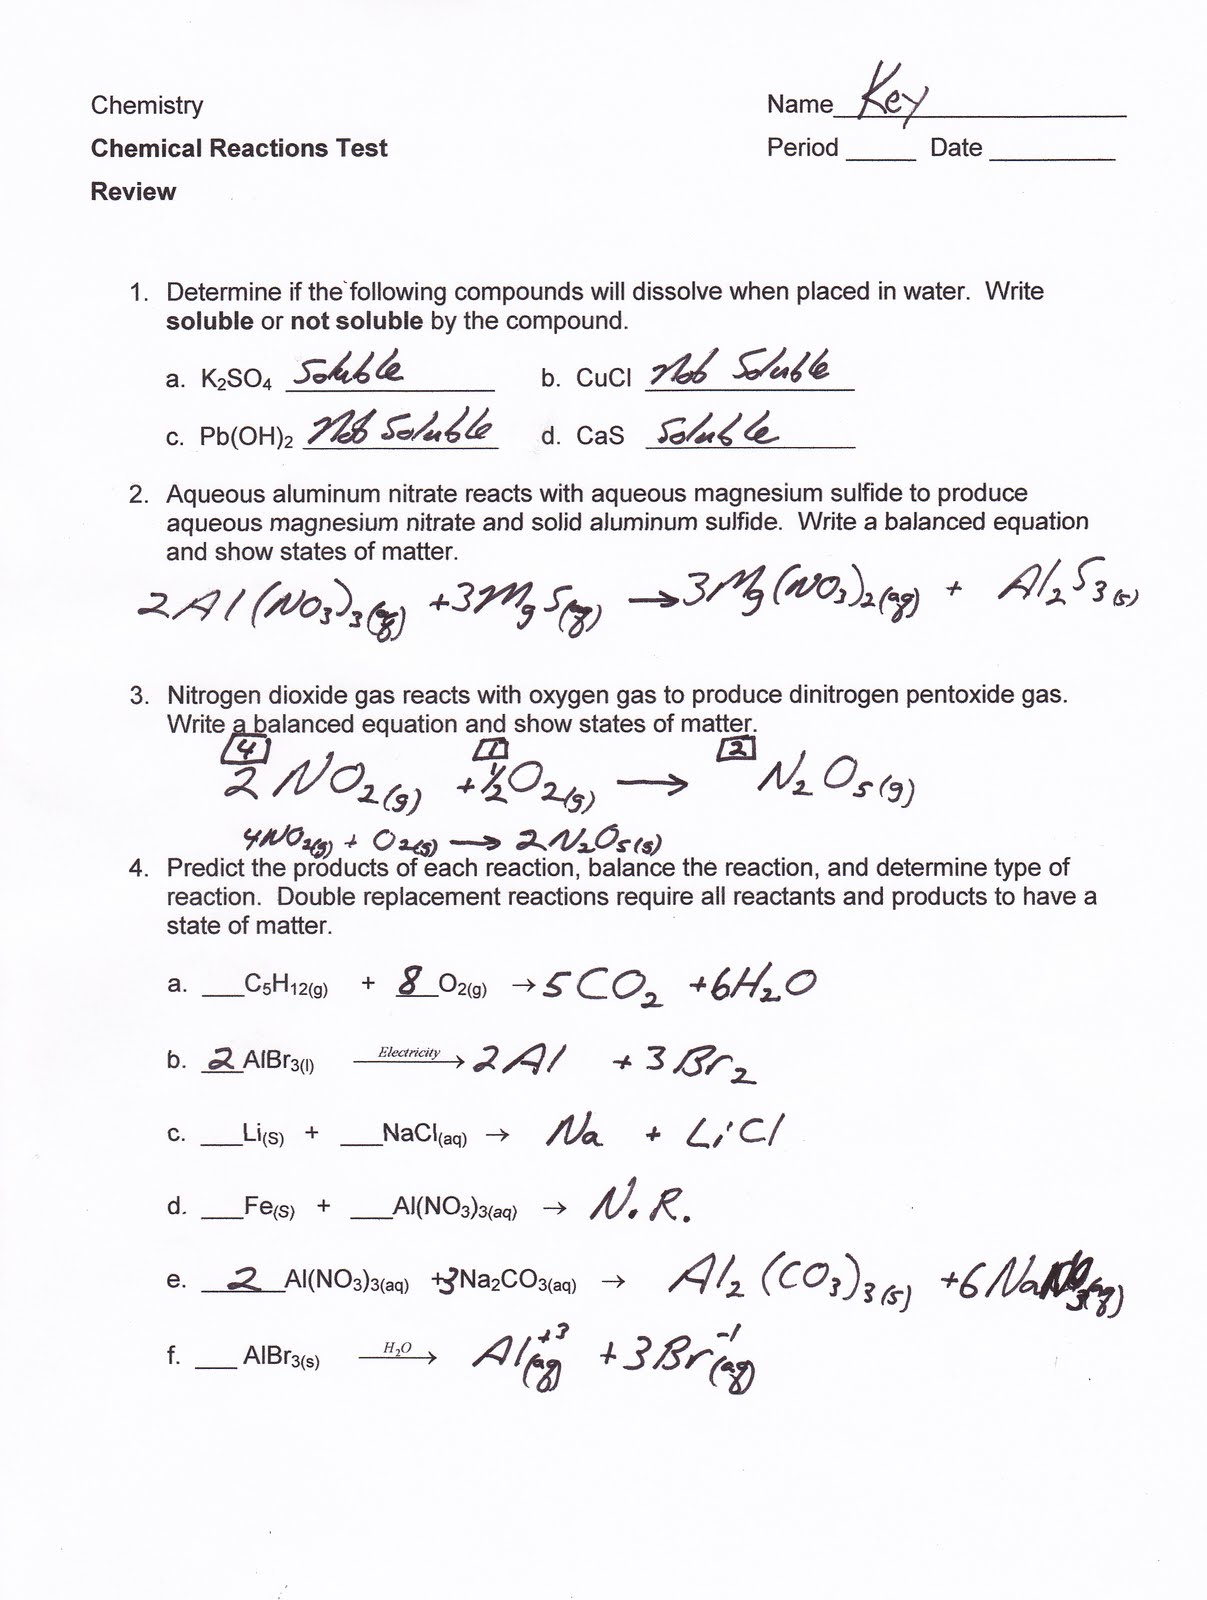 Chemistry Name Key
Chemical Reactions Test Period _____ Date _________
Review
1. Determine if the following compounds will dissolve when placed in water. Write
soluble or not soluble by the compound.
a. K₂SO₄ Soluble b. CuCl Not Soluble
c. Pb(OH)₂ Not Soluble d. CaS Soluble
2. Aqueous aluminum nitrate reacts with aqueous magnesium sulfide to produce
aqueous magnesium nitrate and solid aluminum sulfide. Write a balanced equation
and show states of matter.
2Al(NO₃)₃(aq) +3MgS(aq) → 3Mg(NO₃)₂(aq) + Al₂S₃(s)
3. Nitrogen dioxide gas reacts with oxygen gas to produce dinitrogen pentoxide gas.
Write a balanced equation and show states of matter.
4 1 2
2NO₂(g) +½O₂(g) → N₂O₅(g)
4NO₂(g) + O₂(g) → 2N₂O₅(g)
4. Predict the products of each reaction, balance the reaction, and determine type of
reaction. Double replacement reactions require all reactants and products to have a
state of matter.
a. ___C₅H₁₂(g) + 8 O₂(g) → 5CO₂ +6H₂O
b. 2 AlBr₃(l) Electricity → 2Al + 3Br₂
c. ___Li(S) + ___NaCl(aq) → Na + LiCl
d. ___Fe(S) + ___Al(NO₃)₃(aq) → N.R.
e. 2 Al(NO₃)₃(aq) +3Na₂CO₃(aq) → Al₂(CO₃)₃(s) +6NaNO₃(aq)
f. ___ AlBr₃(s) H₂O → Al⁺³(aq) + 3Br⁻¹(aq)